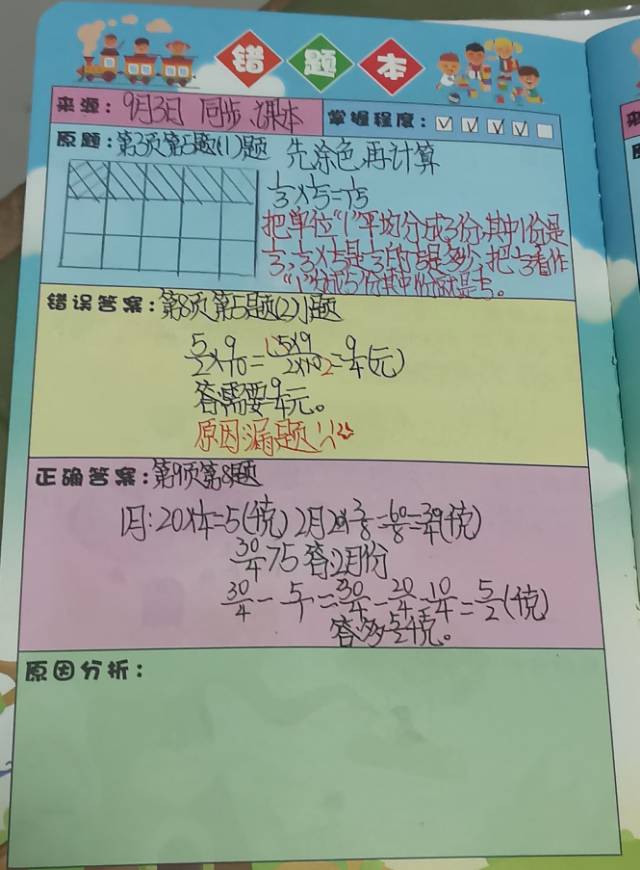 错题本
来源：9月3日 同步、课本
掌握程度：
原题：第3页第5题(1)题 先涂色,再计算
1/3×1/5=1/15
把单位“1”平均分成3份,其中1份是
1/3,1/3×1/5是1/3的1/5是多少,把1/3看作
错误答案：第8页第5题(2)小题
5/2×9/10=5×9/2×10=9/4(元)
答:需要9/4元。
原因:漏题!!
正确答案：第9页第8题
1月:20×1/4=5(千克) 2月20×3/8=60/8=30/4(千克)
30/4>5 答:2月份
30/4-5/1=30/4-20/4=10/4=5/2(千克)
答:多5/2千克。
原因分析：